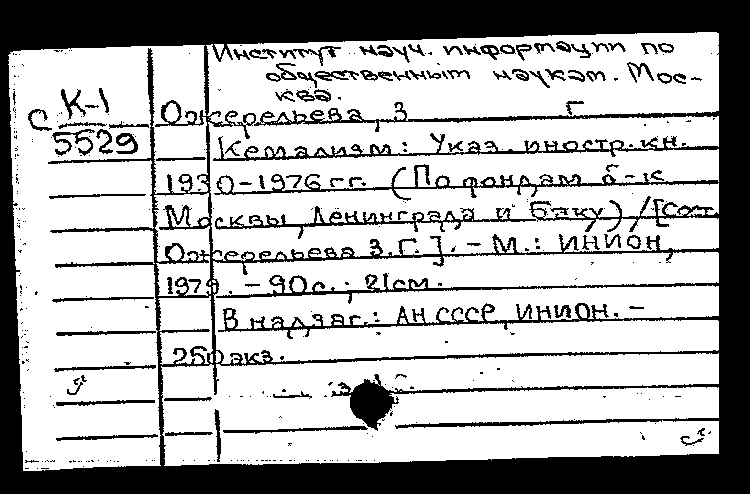 Институт науч. информации по
общественным наукам. Мос-
ква.
с К-1
5529
Ожерельева, З Г
Кемализм: Указ. иностр. кн.
1930-1976 гг. (По фондам б-к
Москвы, Ленинграда и Баку) / [Сост.
Ожерельева З.Г.]. - М.: ИНИОН,
1979. - 90 с.; 21 см.
В надзаг.: АН СССР, ИНИОН. -
250 экз.